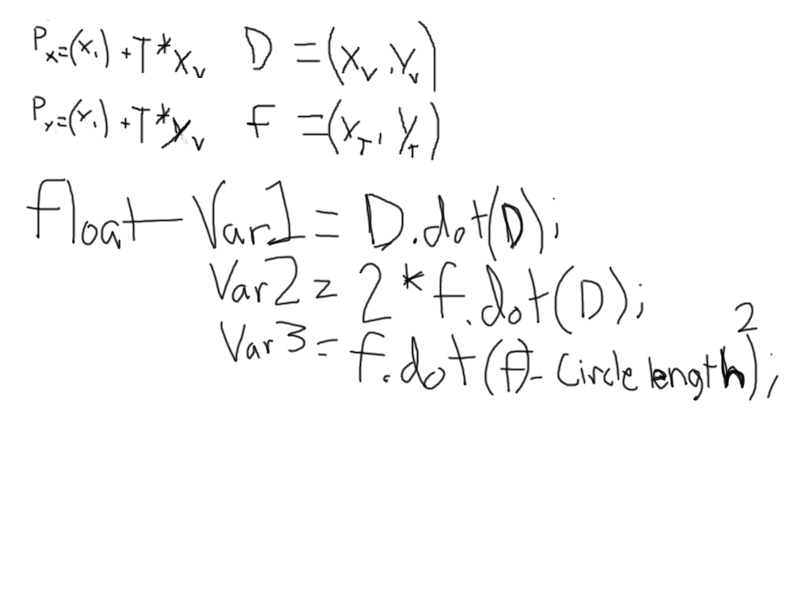 Px=(x₁)+T*Xv D=(Xv,Yv)
Py=(Y₁)+T*Yv F=(XT,YT)
float Var1=D.dot(D);
Var2=2*f.dot(D);
Var3=f.dot(f)-Circle length)²;